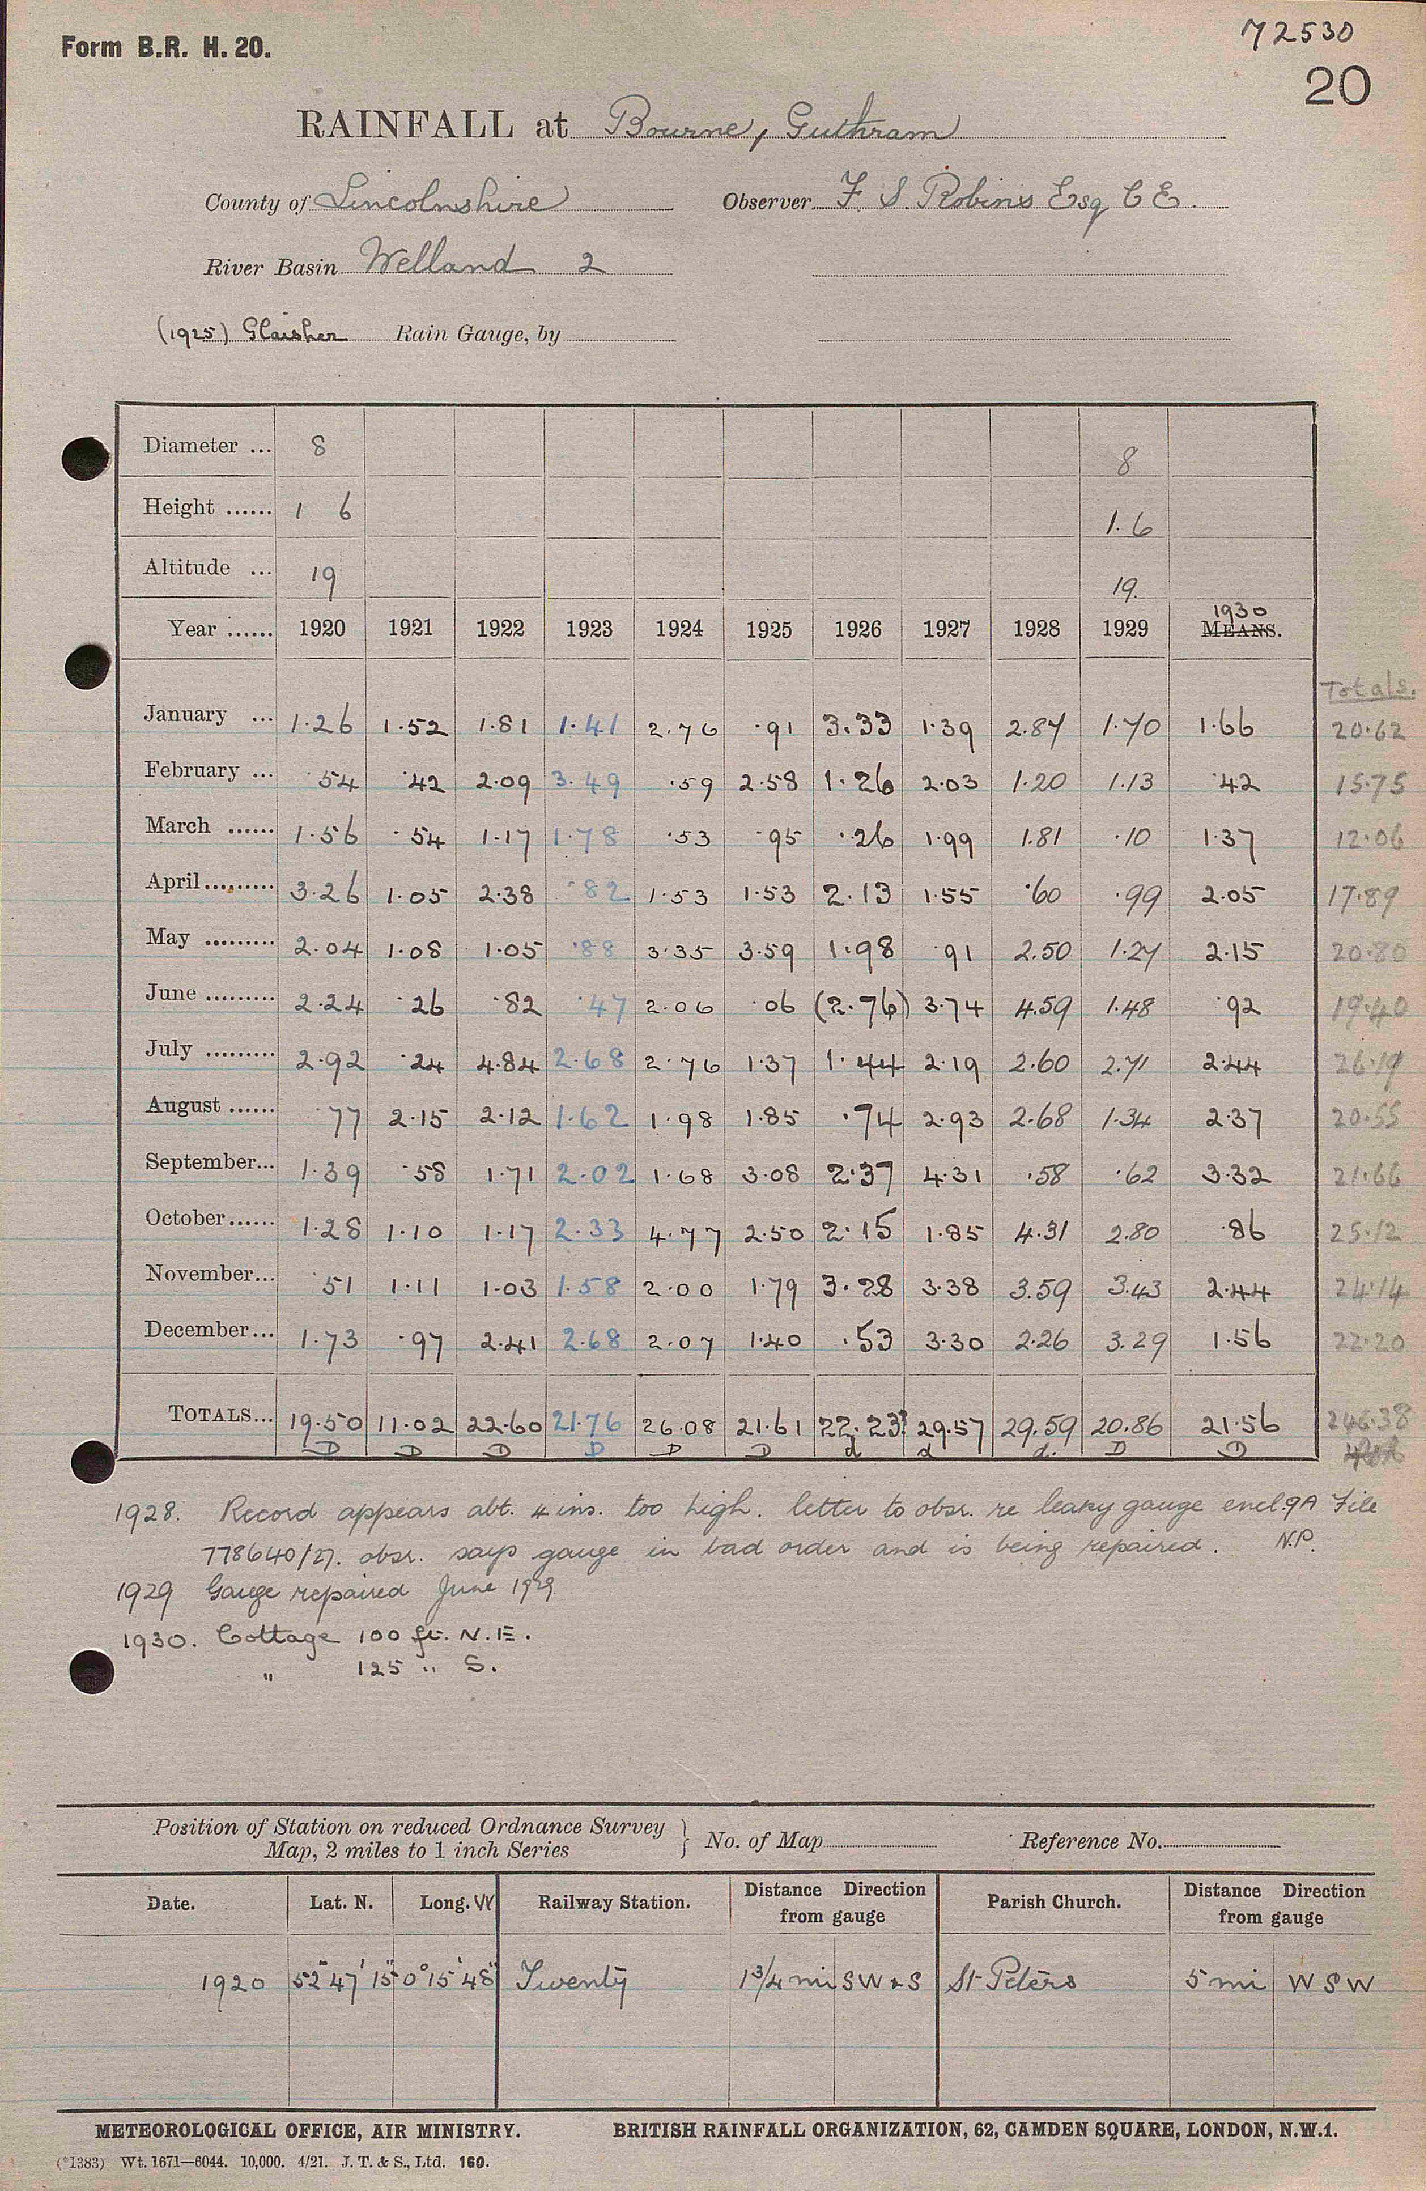 Form B.R. H. 20.
72530
20
RAINFALL at Bourne, Guthram
County of Lincolnshire Observer F. S. Robins Esq C E.
River Basin Welland 2
(1925) Glaisher Rain Gauge, by
Diameter ... 8 8
Height ...... 1 6 1.6
Altitude ... 19 19.
Year ...... 1920 1921 1922 1923 1924 1925 1926 1927 1928 1929 1930 MEANS.
Totals.
January ... 1.26 1.52 1.81 1.41 2.76 .91 3.33 1.39 2.87 1.70 1.66 20.62
February ... .54 .42 2.09 3.49 .59 2.58 1.26 2.03 1.20 1.13 .42 15.75
March ...... 1.56 .54 1.17 1.78 .53 .95 .26 1.99 1.81 .10 1.37 12.06
April ......... 3.26 1.05 2.38 .82 1.53 1.53 2.13 1.55 .60 .99 2.05 17.89
May ......... 2.04 1.08 1.05 .88 3.35 3.59 1.98 .91 2.50 1.27 2.15 20.80
June ......... 2.24 .26 .82 .47 2.06 .06 (2.76) 3.74 4.59 1.48 .92 19.40
July ......... 2.92 .24 4.84 2.68 2.76 1.37 1.44 2.19 2.60 2.71 2.44 26.19
August ...... .77 2.15 2.12 1.62 1.98 1.85 .74 2.93 2.68 1.34 2.37 20.55
September... 1.39 .58 1.71 2.02 1.68 3.08 2.37 4.31 .58 .62 3.32 21.66
October...... 1.28 1.10 1.17 2.33 4.77 2.50 2.15 1.85 4.31 2.80 .86 25.12
November... .51 1.11 1.03 1.58 2.00 1.79 3.28 3.38 3.59 3.43 2.44 24.14
December... 1.73 .97 2.41 2.68 2.07 1.40 .53 3.30 2.26 3.29 1.56 22.20
TOTALS... 19.50 11.02 22.60 21.76 26.08 21.61 22.23? 29.57 29.59 20.86 21.56 246.38
D D D D D D d d d. D D
1928. Record appears abt. 4 ins. too high. letter to obsr. re leaky gauge encl. 9A File
778640/27. obsr. says gauge in bad order and is being repaired. N.P.
1929 Gauge repaired June 1929
1930. Cottage 100 ft. N.E.
" 125 " S.
Position of Station on reduced Ordnance Survey
Map, 2 miles to 1 inch Series } No. of Map Reference No.
Date. Lat. N. Long. W Railway Station. Distance Direction from gauge Parish Church. Distance Direction from gauge
1920 52° 47' 15" 0° 15' 48" Twenty 1 3/4 mi SW & S St Peters 5 mi W S W
METEOROLOGICAL OFFICE, AIR MINISTRY. BRITISH RAINFALL ORGANIZATION, 62, CAMDEN SQUARE, LONDON, N.W.1.
(*1383) Wt. 1671—6044. 10,000. 4/21. J. T. & S., Ltd. 160.